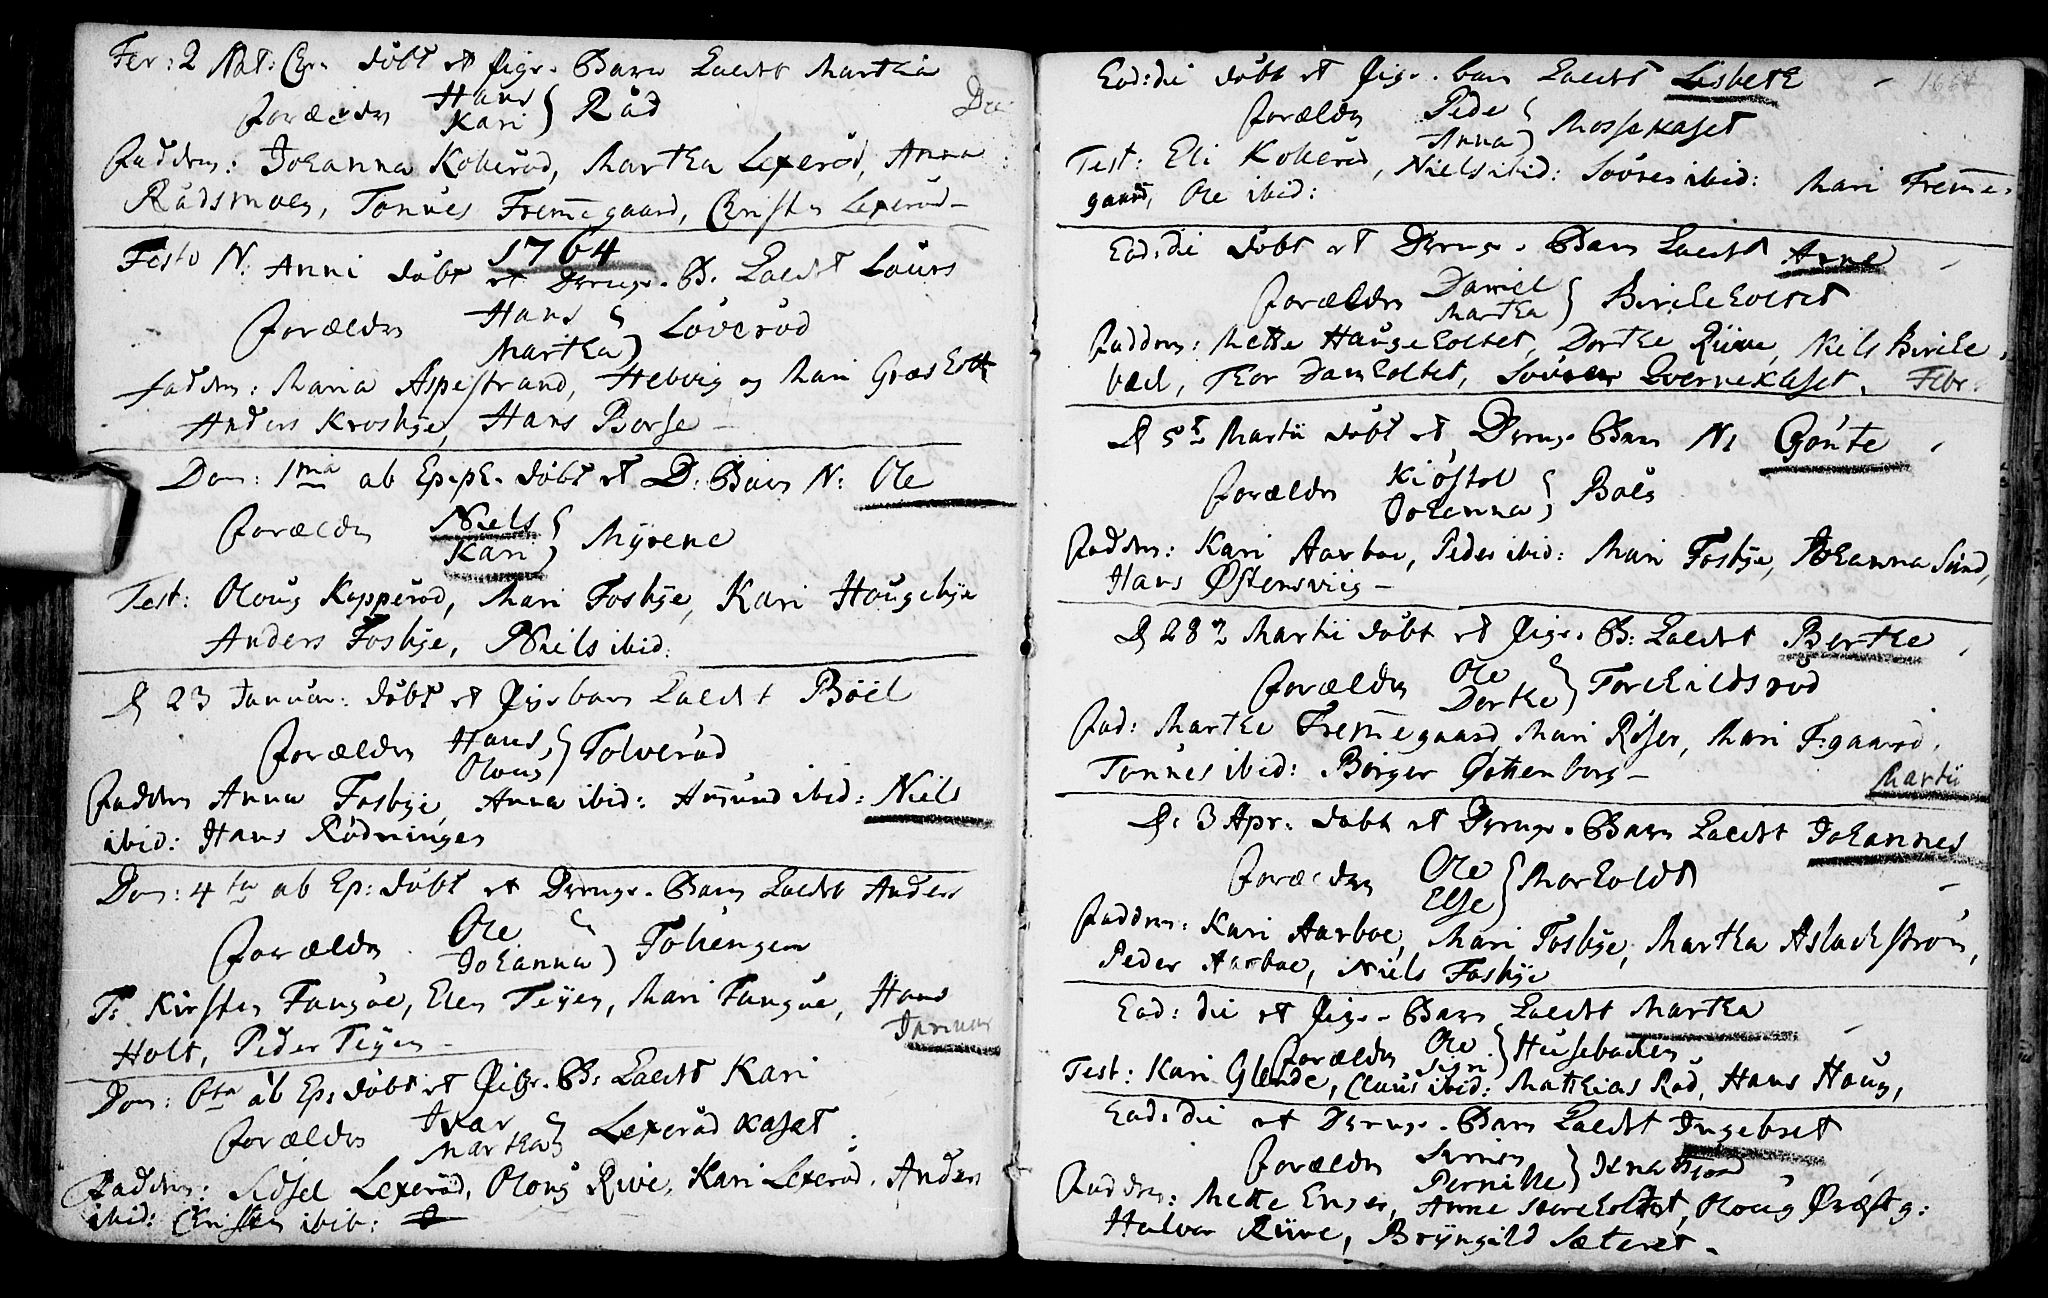 Fer: 2 Nat: Chr. döbt et Pige-Barn kaldt Martha
Forældre Hans
Kari } Råd
Fadderne: Johanna Kollerød, Martha Lexerød, Anna
Rådsmoen, Tönnes Fremegaard, Christen Lexerød
1764
Festo N: Anni döbt et Drenge-B: kaldt Laurs
Forældre Hans
Martha } Löverød
Faddere: Maria Aspestrand, Hedvig og Mari Græsholt
Anders Krosbye, Hans Borse
Dom: 1ma ab Epiph. döbt et D: Barn N: Ole
Forældre Niels
Kari } Myrene
Test: Oloug Kopperød, Mari Fosbye, Kari Hougebye
Anders Fosbye, Niels ibid:
D 23 Januar: döbt et Pigebarn kaldt Böel
Forældre Hans
Oloug } Tolverød
Faddere Anna Fosbye, Anna ibid: Amund ibid: Niels
ibid: Hans Rödningen
Dom: 4ta ab Ep: döbt et Drenge-Barn kaldt Anders
Forældre Ole
Johanna } Tohengen
T: Kirsten Tangöe, Elen Teyen, Mari Tangöe, Hans
Holt, Peder Teyen
Januar
Dom: 6ta ab Ep: döbt et Pige-B: kaldt Kari
Forældre Ivar
Martha } Lexerød kaset
Faddere: Sidsel Lexerød, Oloug Rive, Kari Lexerød, Anders
ibid: Christen ibid:
Ead: die döbt et Pige-barn kaldt Lisbeth
Forældre Peder
Anna } Mossekaset
Test: Eli Kollerød, Niels ibid: Sövren ibid: Mari Freme-
gaard, Ole ibid:
Ead: die döbt et Drenge-Barn kaldt Arne
Forældre Daniel
Martha } Birkeholtet
Faddere: Mette Haugeholtet, Dorthe Riive, Niels Birke-
bæk, Thor Damholtet, Sövren Qvernekaset. Febr:
D 5te Martii döbt et Drenge Barn N: Gönte
Forældre Kiöstol
Johanna } Boen
Faddere: Kari Aarboe, Peder ibid: Mari Fosbye, Johanna Sund,
Hans Østensviig
D 28de Martii döbt et Pige-B: kaldt Berthe
Forældre Ole
Dorthe } Torkildsrød
Fad: Marthe Fremegaard, Mari Röser, Mari F:gaard,
Tönnes ibid: Börger Gottenborg
Martii
D: 3 Apr: döbt et Drenge-Barn kaldt Johannes
Forældre Ole
Else } Morholdt
Fadderne: Kari Aarboe, Mari Fosbye, Martha Aslachström,
Peder Aarboe, Niels Fosbye
Ead: die et Pige-Barn kaldt Martha
Forældre Ole
Sigri } Husebacken
Test: Kari Glende, Claus ibid: Matthias Råd, Hans Houg,
Ead: die et Drenge-Barn kaldt Ingebret
Forældre
Pernille }
Faddere: Mette Enger, Anne Moreholtet, Oloug
Halvor Riive, Bryngild Sæteret